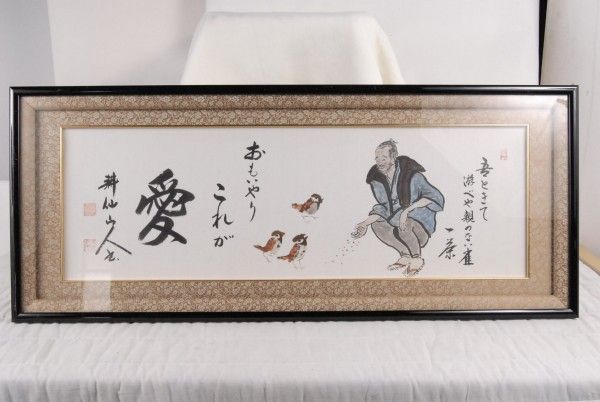 吾ときて
遊べや親のない雀
一茶
おもいやり
これが
愛
耕仙山人书